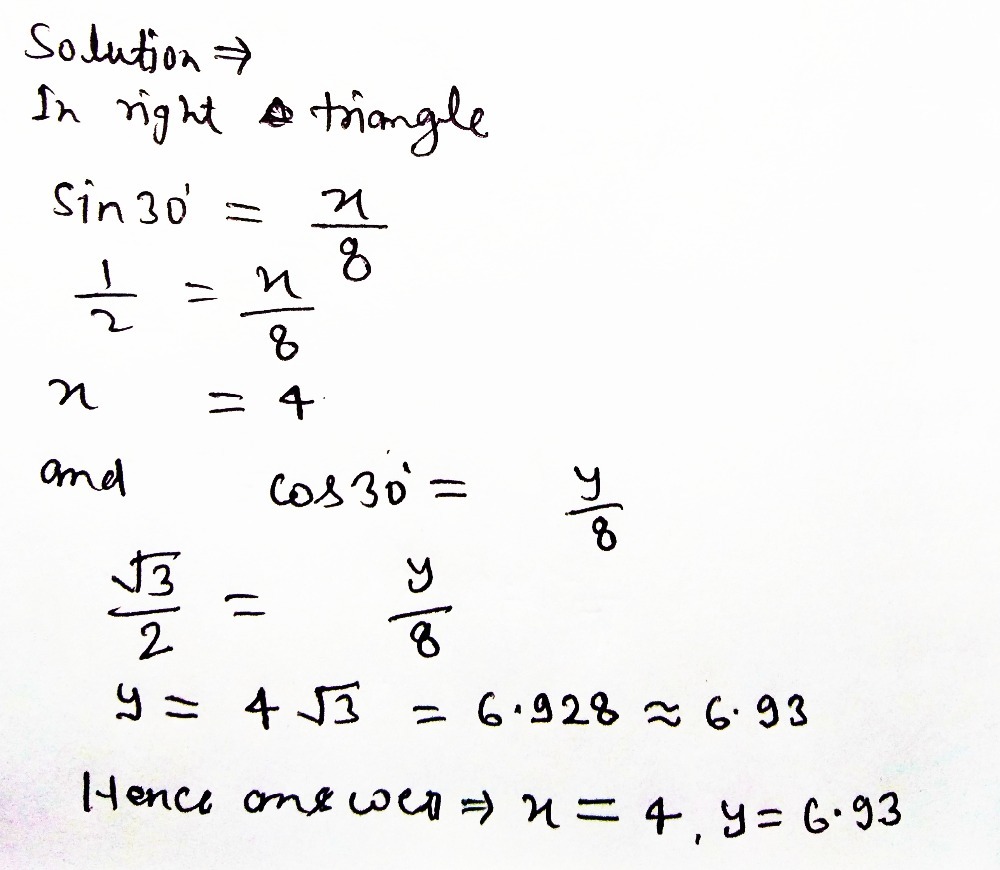 Solution ⇒
In right triangle
Sin 30° = x/8
1/2 = x/8
x = 4
and cos 30° = y/8
√3/2 = y/8
y = 4√3 = 6.928 ≈ 6.93
Hence answer ⇒ x = 4, y = 6.93